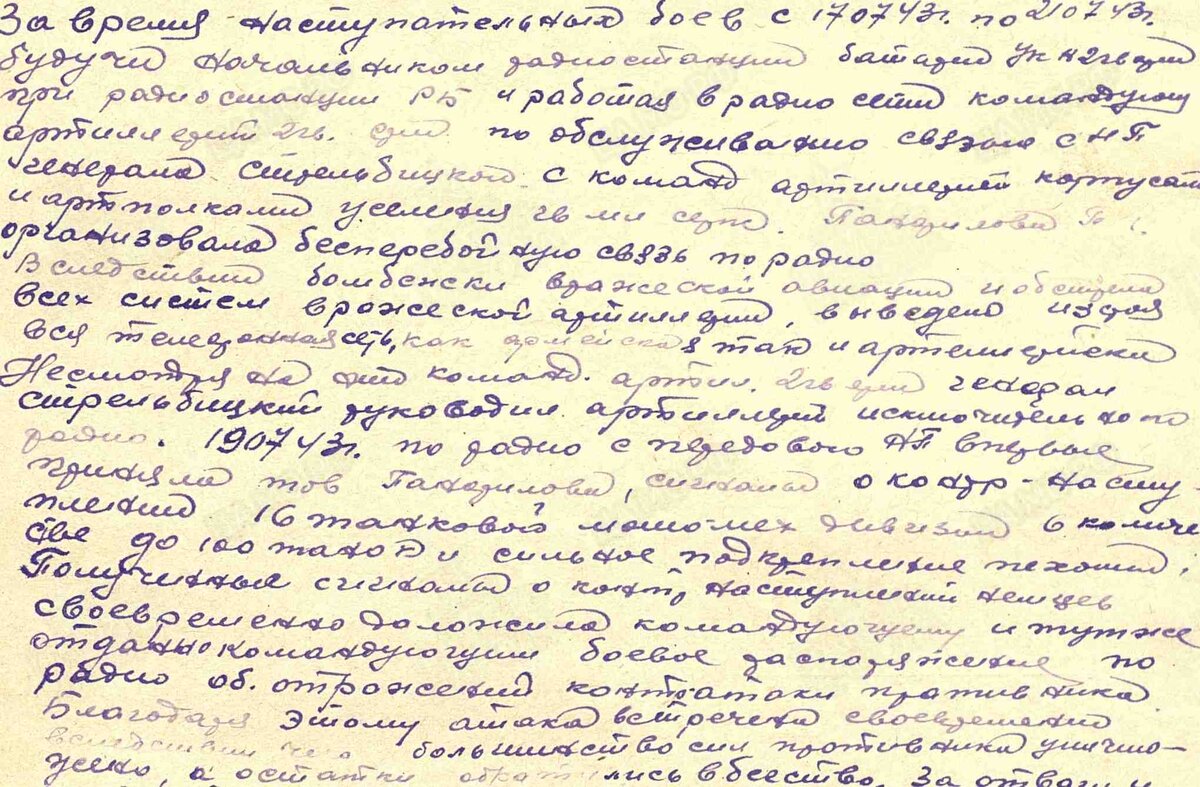 За время наступательных боев с 170743г. по 210743г.
будучи начальником радиостанции батареи Ук н 2гв
при радиостанции РБ и работая в радио сети командующ
артиллерией 2гв. по обслуживанию связью с НП
генерала Стрельбицкой с команд артиллерией корпусам
и артполками усиления гв мл серж. Панфилова
организовала бесперебойную связь по радио
Вследствии бомбежки вражеской авиации и обстрела
всех систем врожеской артиллерии, выведено из строя
вся телефонная сеть, как армейская так и артелерийска
Несмотря на это команд. артил. 2гв генерал
Стрельбицкий руководил артиллерией исключительно по
радио. 190743г. по радио с передового НП впервые
приняла тов Панфилова, сигналы о контр-насту
плении 16 танковой дивизии в количе
стве до 100 танков и сильное подкрепление пехоты.
Полученные сигналы о контр наступлении немцев
своевременно доложила командующему и тутже
отдано командующим боевое распоряжение по
радио об. отрожений контратаки противника
Благодаря этому атака встречена своевременно
вследствии чего большинство сил противника уничто-
жено, а остатки обратились в бегство. За отвагу и